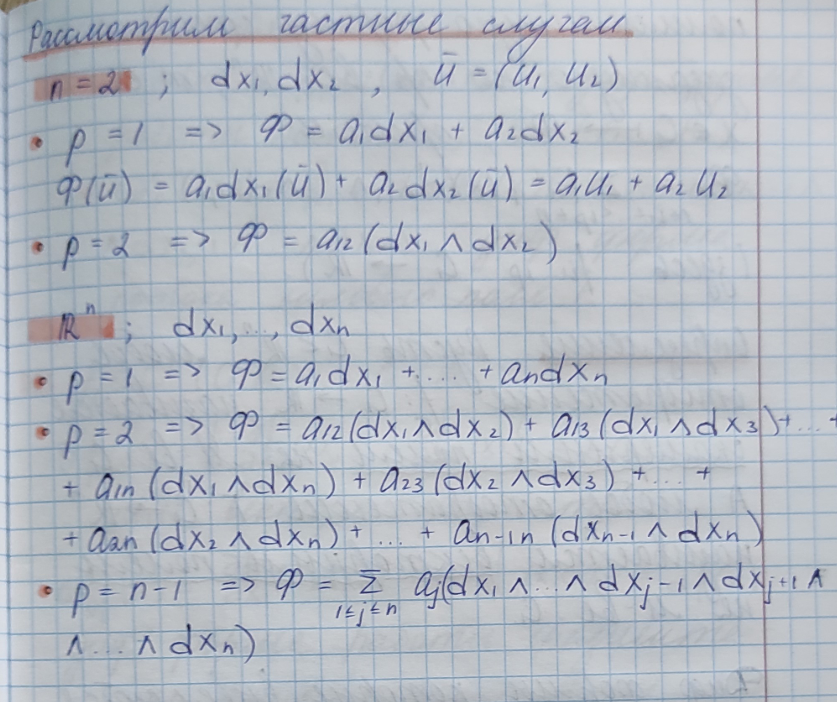 Рассмотрим частные случаи.
n = 2 ; dx₁, dx₂ , ū = (u₁, u₂)
• p = 1 => φ = a₁dx₁ + a₂dx₂
φ(ū) = a₁dx₁(ū) + a₂dx₂(ū) = a₁u₁ + a₂u₂
• p = 2 => φ = a₁₂(dx₁ ∧ dx₂)
ℝⁿ ; dx₁, ..., dxₙ
• p = 1 => φ = a₁dx₁ + ... + aₙdxₙ
• p = 2 => φ = a₁₂(dx₁ ∧ dx₂) + a₁₃(dx₁ ∧ dx₃) + ... +
+ a₁ₙ(dx₁ ∧ dxₙ) + a₂₃(dx₂ ∧ dx₃) + ... +
+ a₂ₙ(dx₂ ∧ dxₙ) + ... + aₙ₋₁ₙ(dxₙ₋₁ ∧ dxₙ)
• p = n-1 => φ = Σ aⱼ(dx₁ ∧ ... ∧ dxⱼ₋₁ ∧ dxⱼ₊₁ ∧
1≤j≤n
∧ ... ∧ dxₙ)